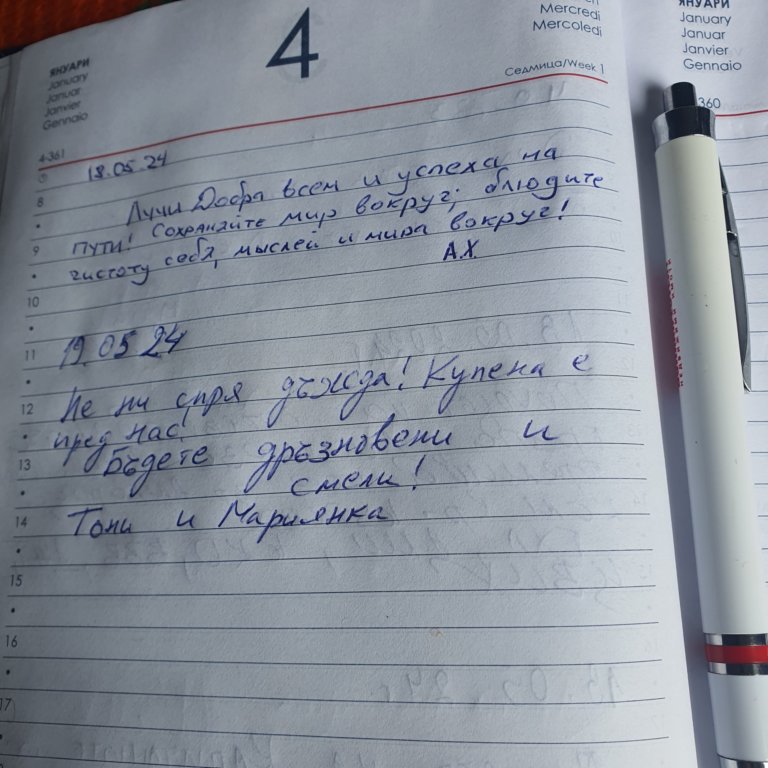 ЯНУАРИ
January
Januar
Janvier
Gennaio
4
Mercredi
Mercoledì
Седмица/Week 1
ЯНУАРИ
January
Januar
Janvier
Gennaio
4-361
360
7
18.05.24
8
Лучи Добра всем и успеха на
пути! Сохраняйте мир вокруг; блюдите
9
чистоту себя, мыслей и мира вокруг!
А.Х.
10
11
19.05 24
12
Не ни спря дъжда! Купена е
пред нас!
13
Бъдете дръзновени и
смели!
14
Тони и Мариянка
15
16
17